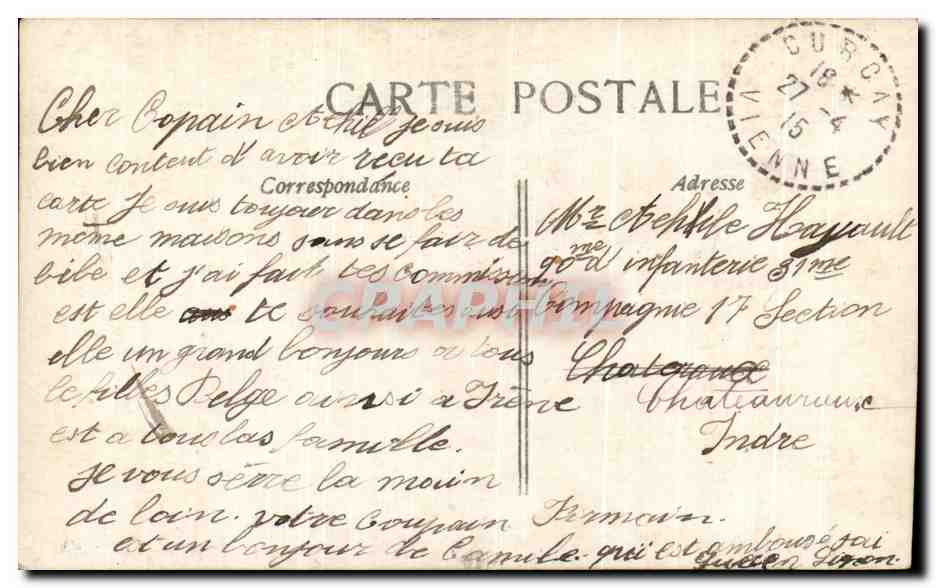 CARTE POSTALE
CURCAY
18 *
27 -4
15
VIENNE
Correspondance
Cher Copain Achil je suis
bien content d'avoir reçu ta
carte Je suis toujour dans les
même maisons sans se fair de
bibe et j'ai fait tes commissions
est elle te souraite
elle un grand bonjours a tous
le filles Belge ainsi a Irène
est a tous las famille.
je vous sèrre la main
de loin. votre Coupain Firmain.
et un bonjour de Camile. qui est ambousé
Adresse
Mr Achille Hayault
90me d infanterie 31me
Compagnie 17 Section
Chateauroux
Indre
CPAPHIL